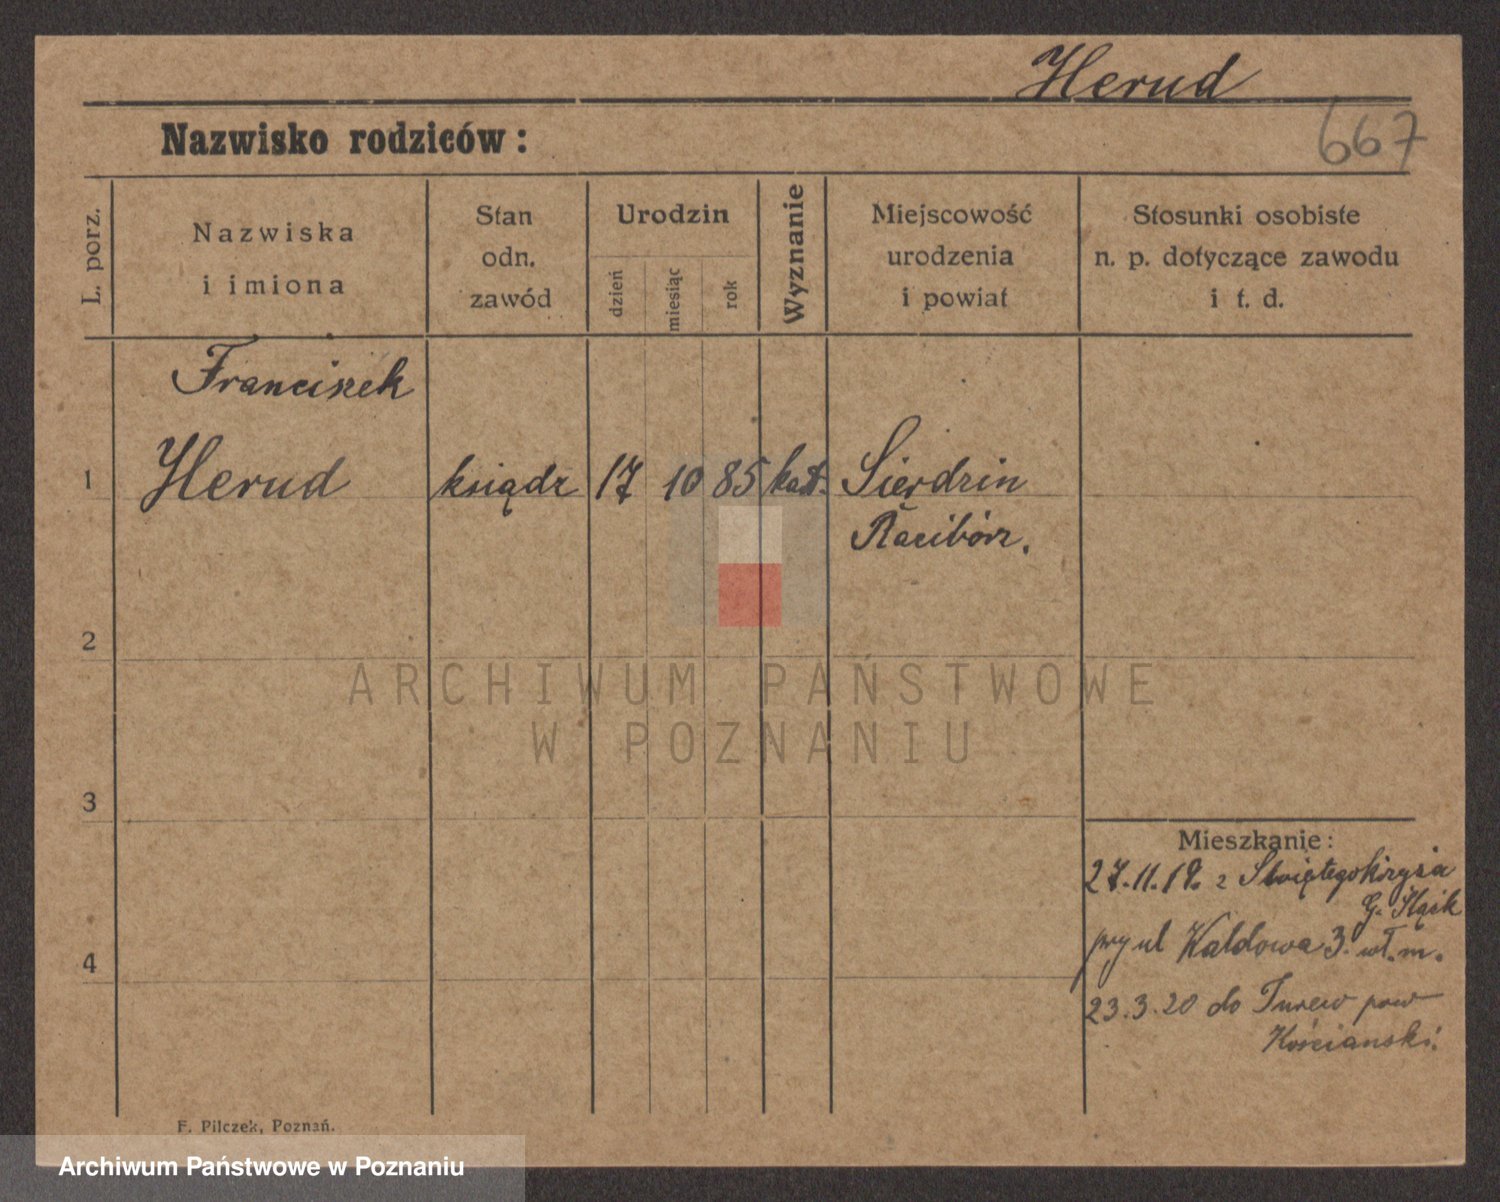 Herud
Nazwisko rodziców:
667
L. porz.
Nazwiska
i imiona
Stan
odn.
zawód
Urodzin
dzień
miesiąc
rok
Wyznanie
Miejscowość
urodzenia
i powiat
Stosunki osobiste
n. p. dotyczące zawodu
i t. d.
Franciszek
1 Herud ksiądz 17 10 85 kat. Sierdzin
Racibórz.
2
ARCHIWUM PAŃSTWOWE
W POZNANIU
3
Mieszkanie:
27.11.19. z Świętegokrzyża
G. Śląsk
przy ul 3. wł. m.
4
23.3.20 do Turew pow
Kościański.
F. Pilczek, Poznań.
Archiwum Państwowe w Poznaniu